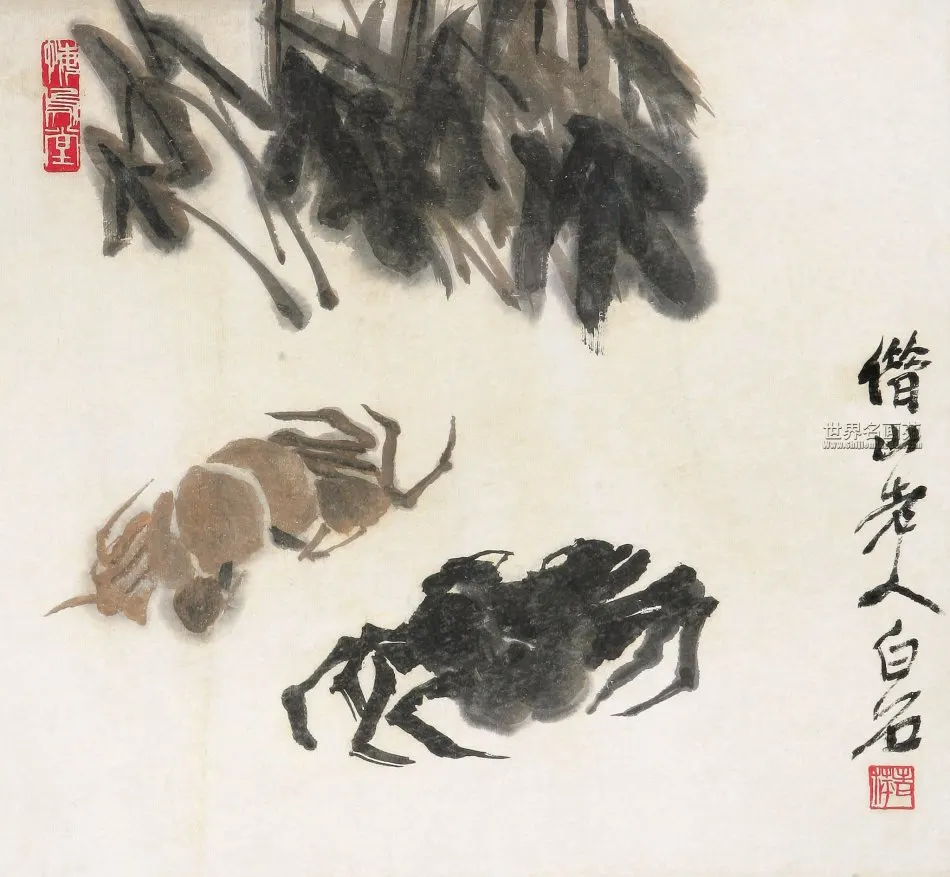 悔烏堂
借山老人白石
老萍
世界名画